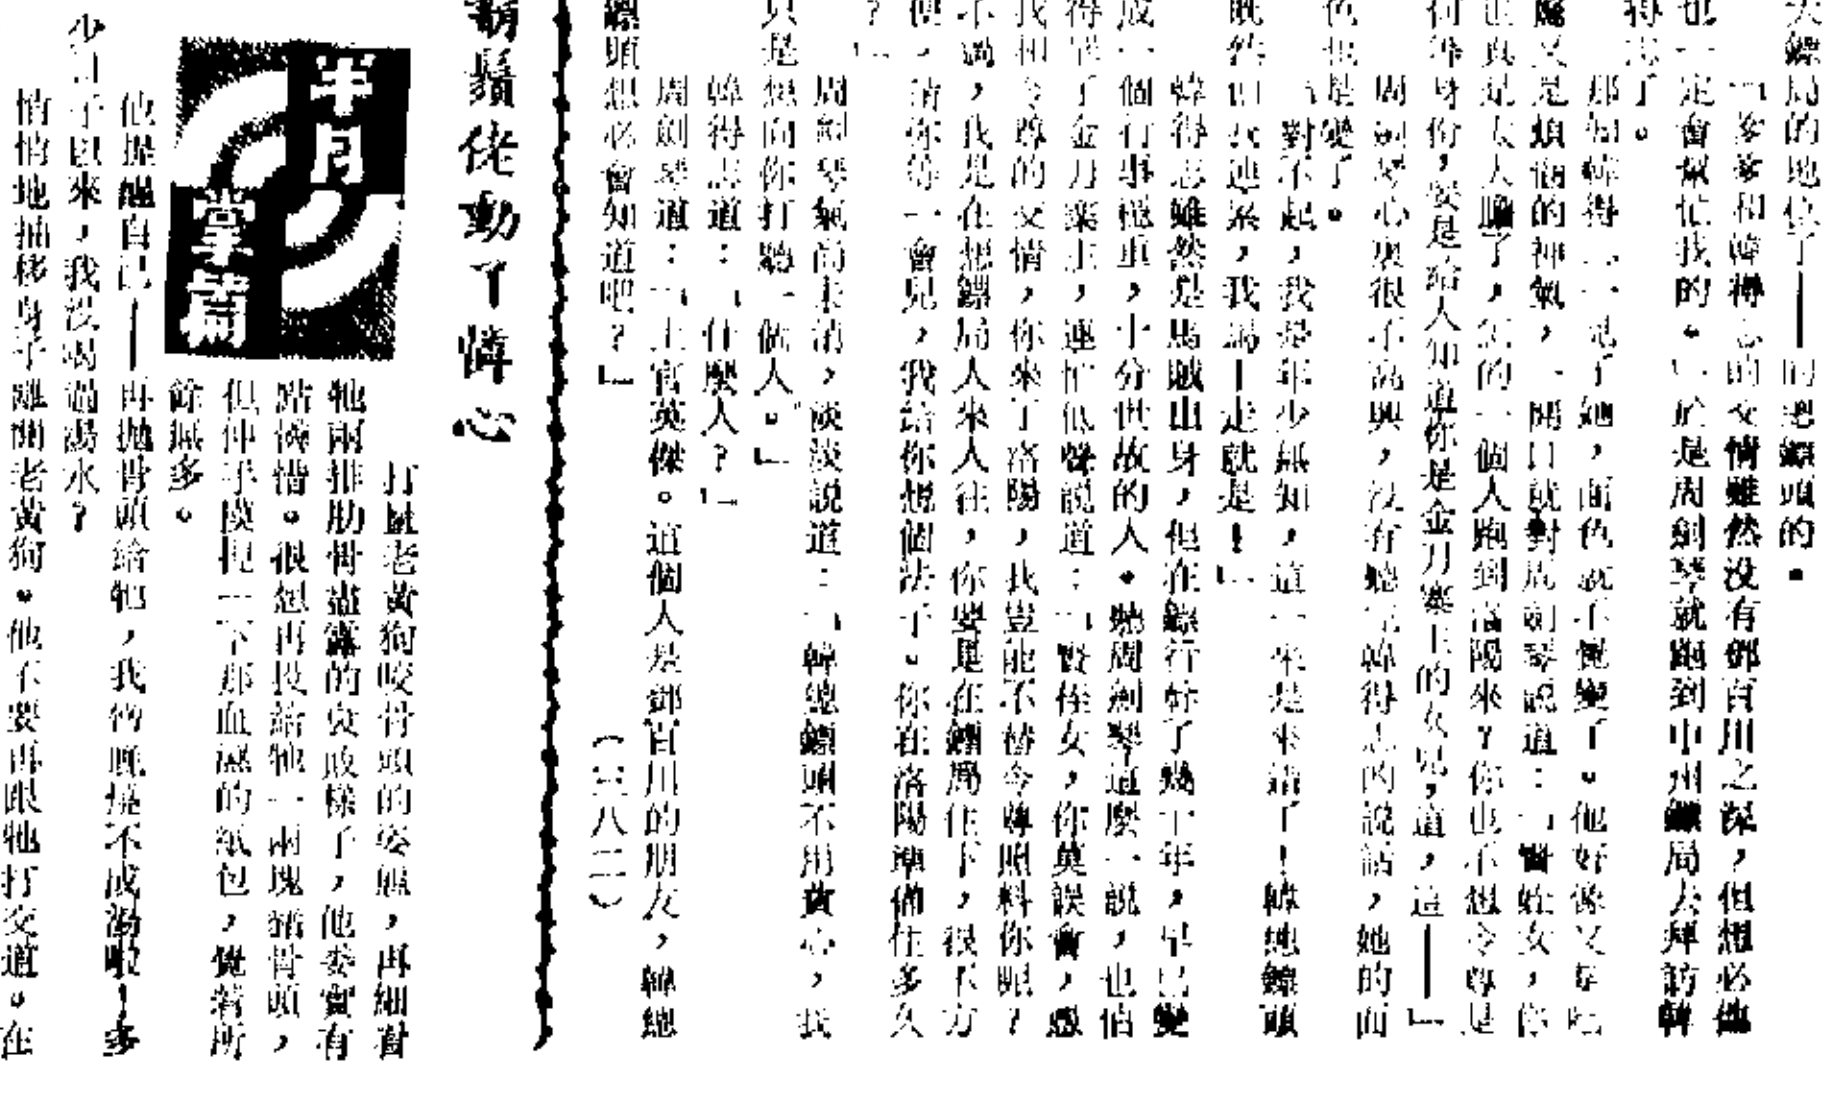 大鏢局的地位了——的總鏢頭的。
「爹爹和韓得志的交情雖然沒有鄧百川之深,但想必他
也一定會幫忙我的。」於是周劍琴就跑到中州鏢局去拜訪韓
得志了。
那知韓得志一見了她,面色就不覺變了。他好像又是吃
驚又是煩惱的神氣,一開口就對周劍琴說道:「賢姪女,你
也真是太大膽了,怎的一個人跑到洛陽來?你也不想令尊是
何等身份,要是給人知道你是金刀寨主的女兒,這,這——」
周劍琴心裏很不高興,沒有聽完韓得志的說話,她的面
色也是變了。
「對不起,我是年少無知,這一來是來錯了!韓總鏢頭
既然怕我連累,我馬上走就是!」
韓得志雖然是馬賊出身,但在鏢行幹了幾十年,早已變
成一個行事穩重,十分世故的人。聽周劍琴這麼一說,也怕
得罪了金刀寨主,連忙低聲說道:「賢侄女,你莫誤會,憑
我和令尊的交情,你來了洛陽,我豈能不替令尊照料你呢?
不過,我是在想鏢局人來人往,你要是在鏢局住下,很不方
便,請你等一會兒,我給你想個法子。你在洛陽準備住多久
?」
周劍琴氣尚未消,淡淡說道:「韓總鏢頭不用費心,我
只是想向你打聽一個人。」
韓得志道:「什麼人?」
周劍琴道:「上官英傑。這個人是鄧百川的朋友,韓總
鏢頭想必會知道吧?」
(三八二)
鬍鬚佬動了憐心
半月
當菜
打量老黃狗咬骨頭的姿態,再細看
牠兩排肋骨盡露的衰敗樣子,他委實有
點憐惜。很想再投給牠一兩塊豬骨頭,
但伸手摸捏一下那血濕的紙包,覺着所
餘無多。
他提醒自己——再拋骨頭給牠,我待晚燒不成湯啦!多
少日子以來,我沒喝過湯水?
悄悄地抽移身子離開老黃狗。他不要再跟牠打交道。在